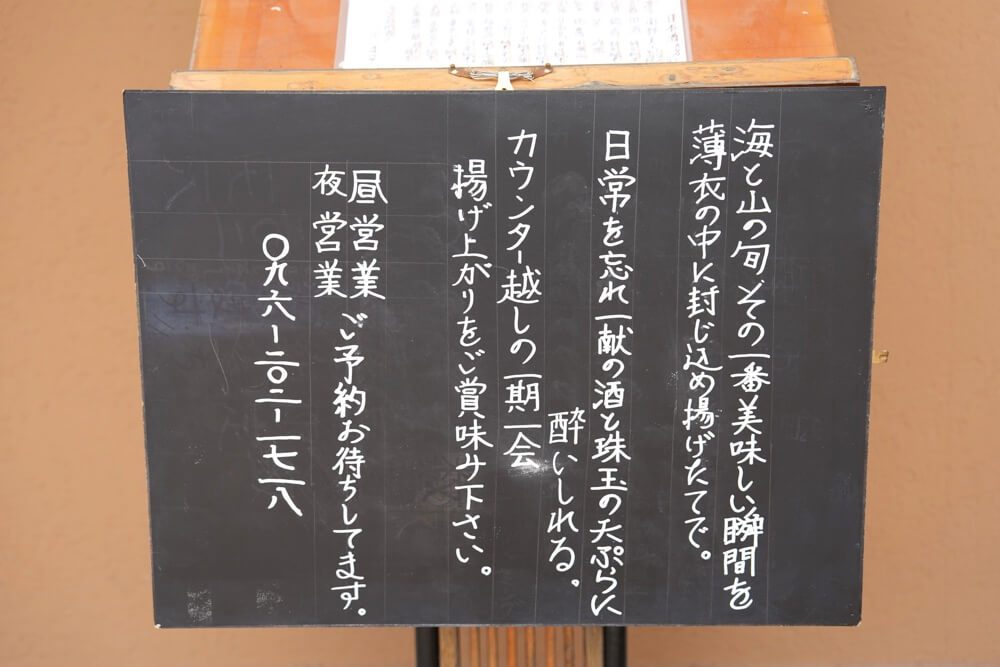 海と山の旬、その一番美味しい瞬間を
薄衣の中に封じ込め揚げたてで。
日常を忘れ一献の酒と珠玉の天ぷらに
酔いしれる。
カウンター越しの一期一会
揚げ上がりをご賞味み下さい。
昼営業
夜営業
ご予約お待ちしてます。
〇九六ー二〇二ー一七一八